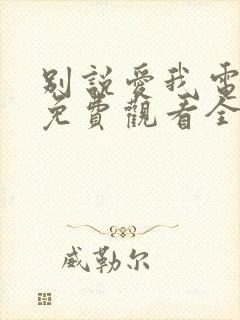 別說愛我電
免費觀看全
威勒尔